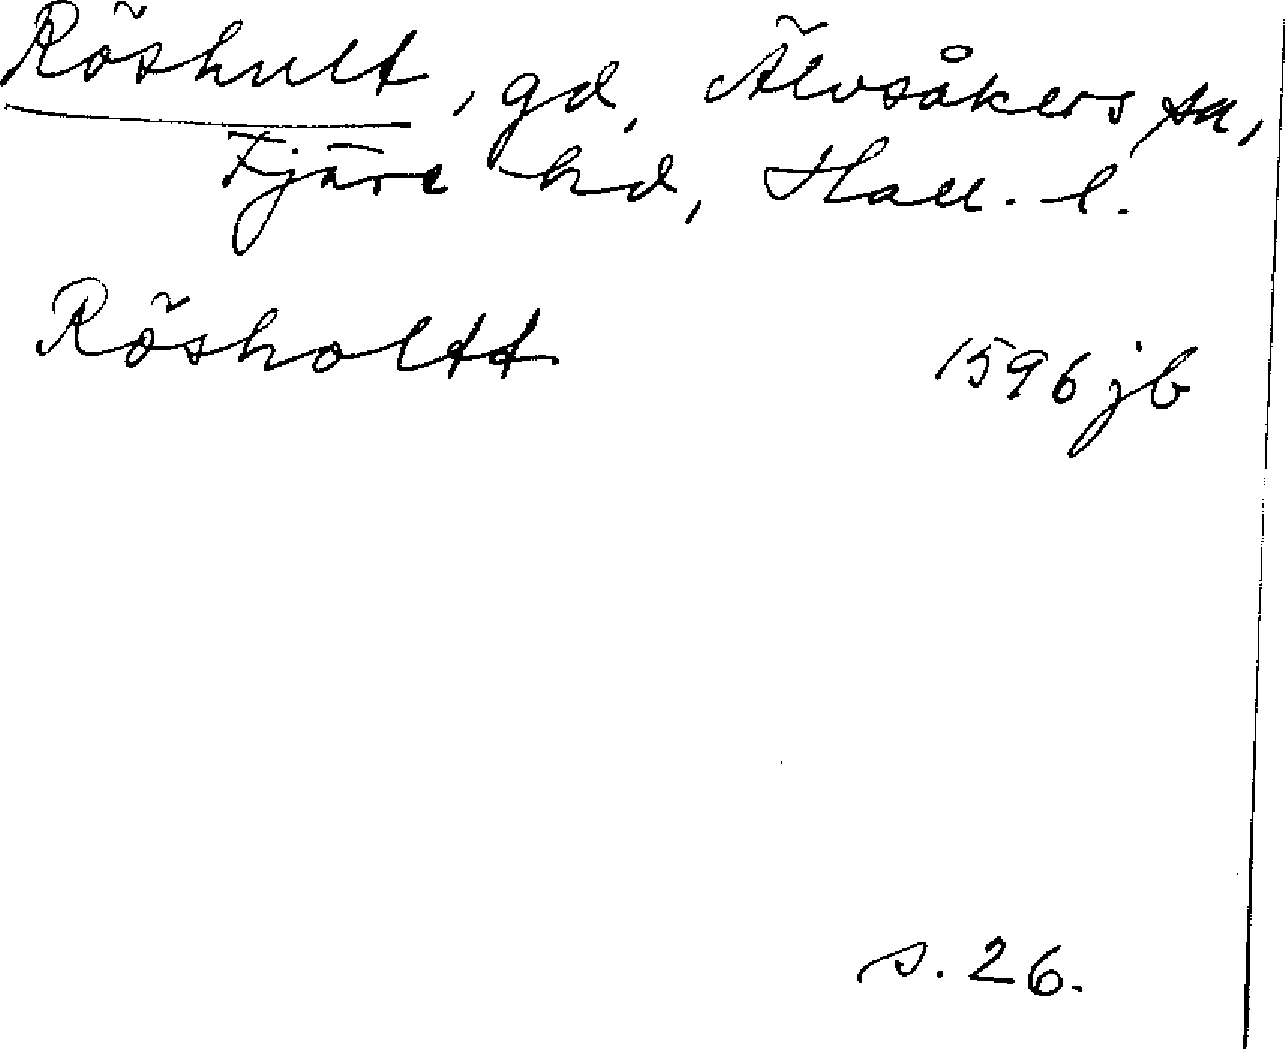 Röshult, gd, Älvsåkers sn,
Fjäre hd, Hall. l.
Rösholtt 1596 jb
s. 26.